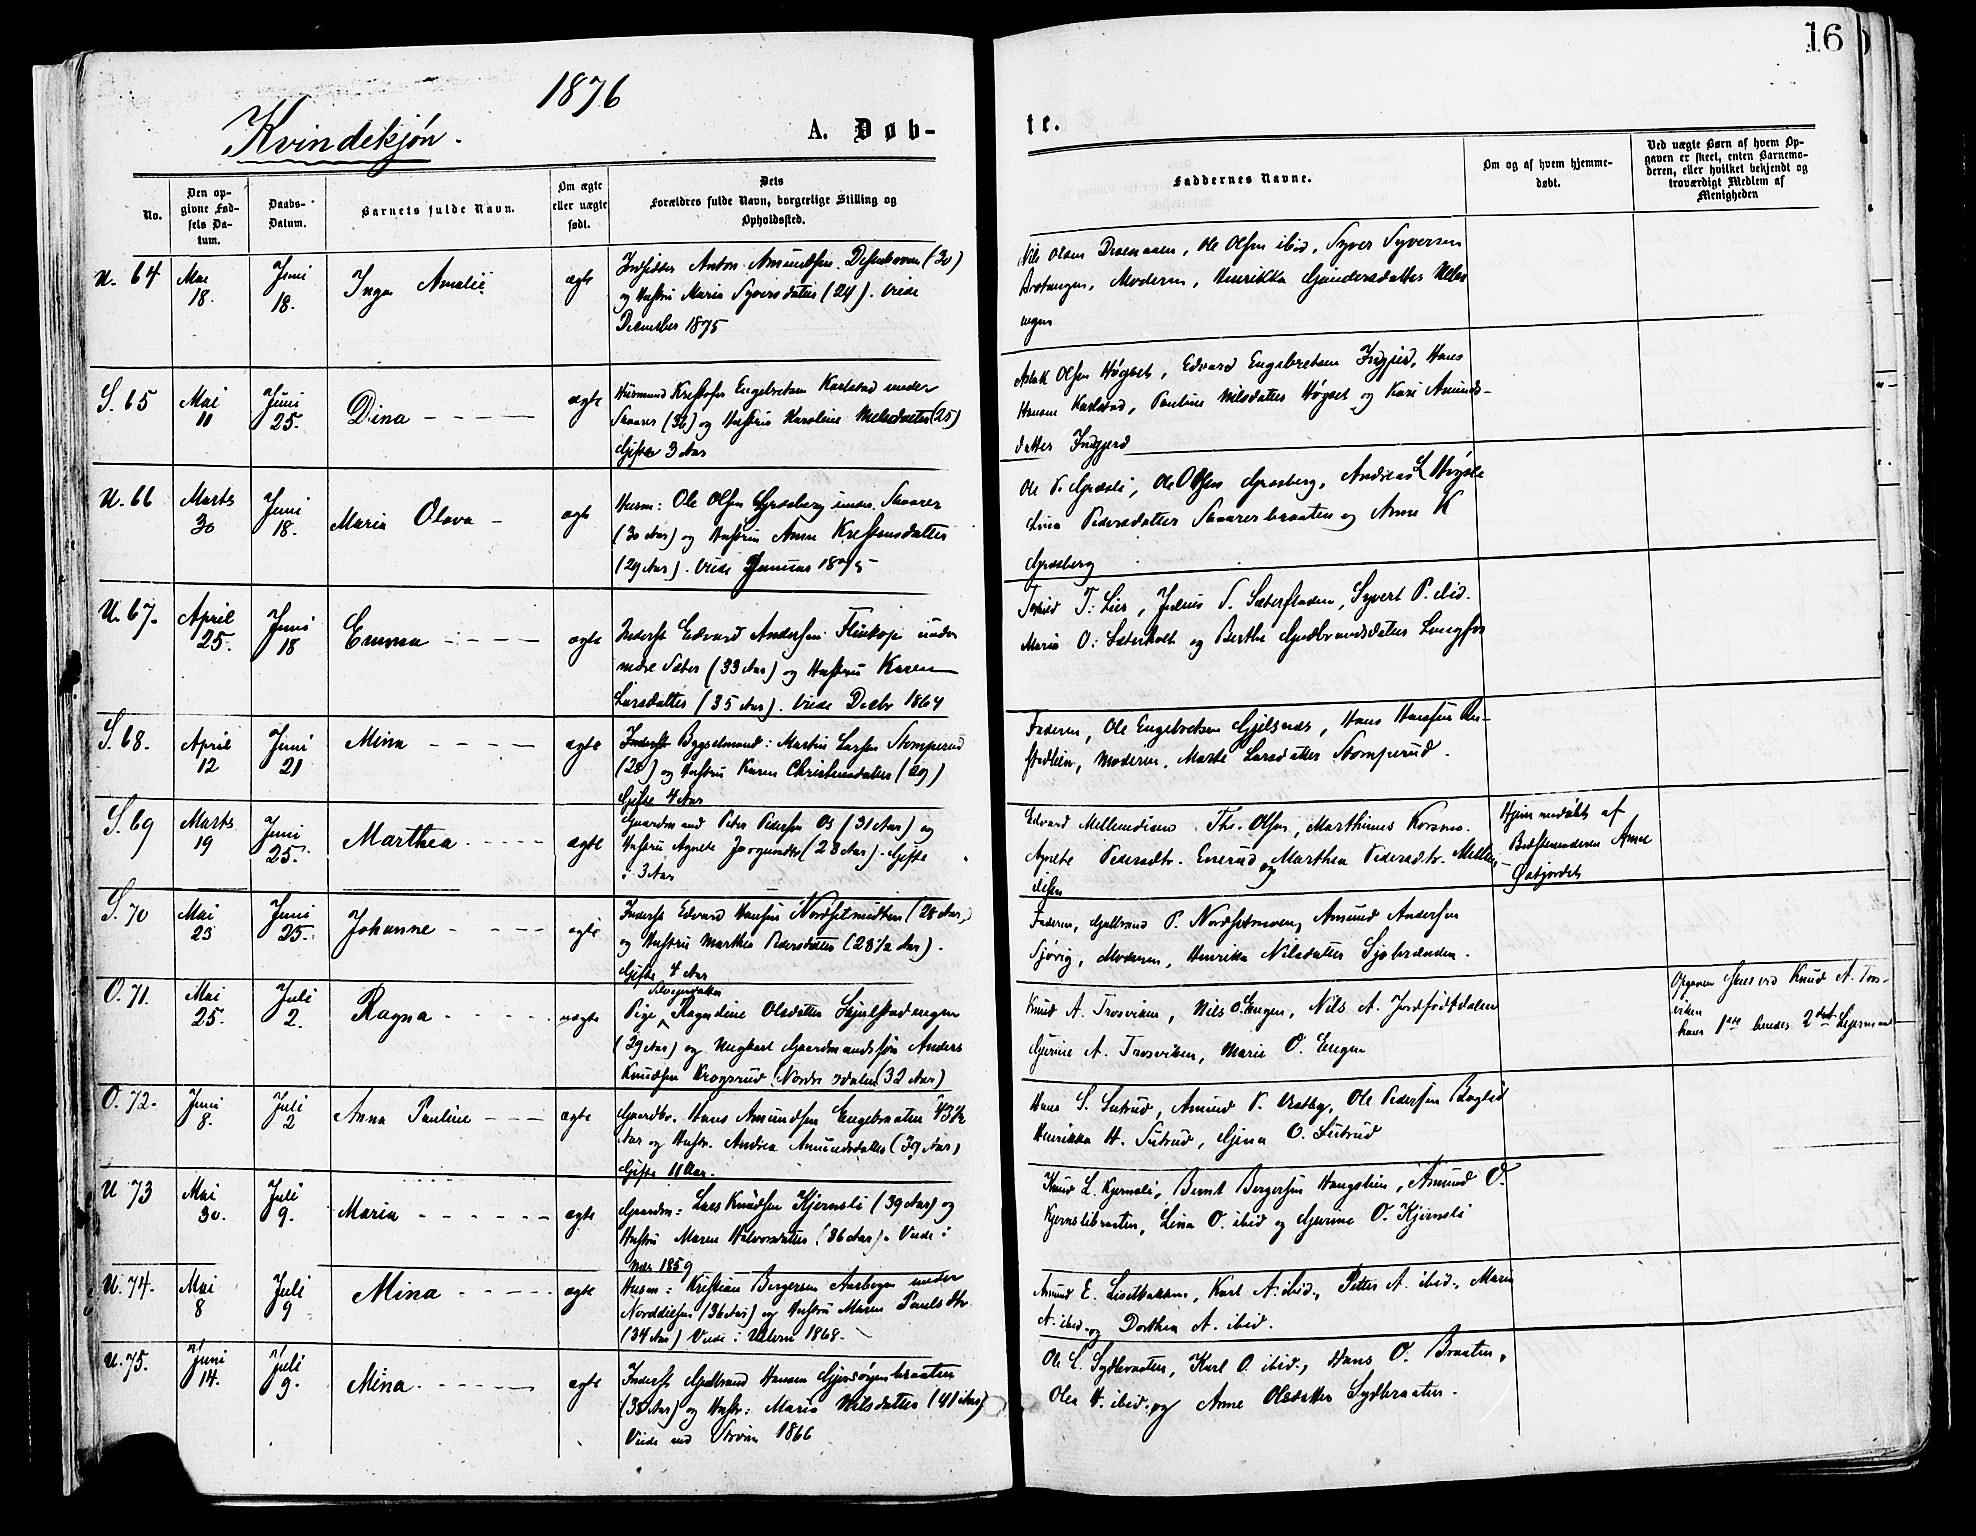 16
1876
Kvindekjøn.
A. Døb-
te.
No.
Den op-
givne Fød-
sels Da-
tum.
Daabs-
Datum.
Barnets fulde Navn.
Om ægte
eller uægte
født.
Dets
Forældres fulde Navn, borgerlige Stilling og
Opholdssted.
Faddernes Navne.
Om og af hvem hjemme-
døbt.
Ved uægte Børn af hvem Op-
gaven er skeet, enten Barnemo-
deren, eller hvilket bekjendt og
troværdigt Medlem af
Menigheden
U. 64 Mai 18. Juni 18. Inga Amalie ægte
Indsidder Anton Amundsen (30)
og Hustru Maria Syversdatter (24). Viede
December 1875
Nils Olsen, Ole Olsen ibid, Syver Syversen
Moderen, Henrikka Gundersdatter
S. 65 Mai 11 Juni 25. Dina ægte
Huusmand Kristofer Engebretsen Karlstad under
Skaarer (36) og Hustru Karoline (25)
Gifte 3 Aar
Aslak Olsen Høgset, Edvard Engebretsen Indgjerd, Hans
Hansen Karlstad, Pauline Nilsdatter Høgset og Kari Amunds-
datter Indgjerd
U. 66 Marts 30 Juni 18. Maria Olava ægte
Husm: Ole Olsen Græsberg under Skaarer
(30 Aar) og Hustru Anne Kristensdatter
(29 Aar). Viede Januar 1875
Ole P. Græsli, Ole Olsen Græsberg, Andreas L
Lina Pedersdatter Skaarerbraaten og Anne K
Græsberg
U. 67. April 25. Juni 18 Emma ægte
Inderst Edvard Andersen Flaukop under
Sæter (33 Aar) og Hustru Karen
Larsdatter (35 Aar). Viede Decbr 1864
T. Lier, Julius S. Sæterstaden, Syvert P. ibid.
Maria O. Sæterholt og Berthe Gudbrandsdatter Langfos
S. 68. April 12 Juni 21 Mina ægte
Inderst Bygselmand: Martin Larsen Stomperud
(28) og Hustru Karen Christensdatter (29)
Gifte 4 Aar
Faderen, Ole Engebretsen Gjelsnæs, Hans Hansen
Moderen, Marte Larsdatter Stomperud.
S. 69 Marts 19 Juni 25. Marthea ægte
Gaardmand Peter Pedersen Os (31 Aar) og
Hustru Agnete (23 Aar). Gifte
i 3 Aar
Edvard, Th. Olsen, Marthinus Korsmo.
Agnete Pedersdtr. Enerud og Marthea Pedersdtr.
Hjemmedøbt af
Bedstemoderen Anne
Østjordet
S. 70 Mai 23 Juni 25. Johanne ægte
Inderst Edvard Hansen Nordsetmidten (28 Aar)
og Hustru Marthe Pedersdatter (23½ Aar).
Gifte 4 Aar
Faderen, Gulbrand P. Nordsetmoen, Amund Andersen
Sjøvig, Moderen, Henrikka Nilsdatter
O. 71. Mai 25. Juli 2. Ragna uægte
Pige Ragndine Olsdatter Skjulstadengen
(39 Aar) og Ungkarl Gaardmandssøn Anders
Knudsen Krogsrud Nordre Odalen (32 Aar)
Knud A. Trosviken, Nils O. Engen, Nils A. Jordfødtdalen
Gjerine A. Trosviken, Marie O. Engen
Opgaven skeet ved Knud A. Tros-
viken
hans 1ste hendes 2det Leiermaal
O. 72. Juni 8. Juli 2 Anna Pauline ægte
Gaardbr. Hans Amundsen Engebraaten 43½
Aar og Hustr. Andrea Amundsdatter (39 Aar)
Gifte 11 Aar.
Hans S. Sutrud, Amund P., Ole Pedersen
Henrikka H. Sutrud, Gina O. Sutrud
U 73 Mai 30. Juli 9. Maria ægte
Gaardm: Lars Knudsen Kjernsli (39 Aar) og
Hustru Maren Halvorsdatter (36 Aar). Viede i
1859
Knud L. Kjernsli, Bernt Bergersen Haugstein, Amund O.
Kjernslibraaten, Lina O. ibid og Gjerine O. Kjernsli
U. 74. Mai 8 Juli 9 Mina ægte
Husm: Kristian Bergersen Aasbogen under
Norddiesen (36 Aar) og Hustru Maren Paulsdtr
(34 Aar) Viede i 1868.
Amund E. Lisetbakken, Karl A. ibid., Petter A. ibid., Maria
A. ibid. og Dorthea A. ibid.
U. 75. Juni 14. Juli 9. Mina ægte
Inderst Gulbrand Hansen Gjersøyenbraaten
(38 Aar) og Hustr: Maria Nilsdatter (41 Aar)
Viede ved Strøm 1866
Ole E. Sydbraaten, Karl O. ibid., Hans O. Braaten,
Olea H. ibid. og Anne Olsdatter Sydbraaten.